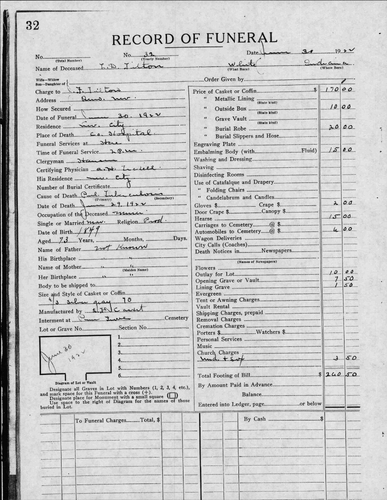 32
RECORD OF FUNERAL
No. 32 Date June 30 1922
(Total Number) (Yearly Number)
Name of Deceased T.D. Tilton White
(What Race) (Where Born)
Wife—Widow
Son—Daughter of
Order Given by
Charge to
Address
How Secured
Date of Funeral June 30, 1922
Residence City
Place of Death Co. Hospital
Funeral Services at
Time of Funeral Service 2 P.M.
Clergyman
Certifying Physician
His Residence City
Number of Burial Certificate
Cause of Death
Date of Death June 29, 1922
Occupation of the Deceased Miner
Single or Married Religion Prod
Date of Birth 1849
Aged 73 Years, Months, Days.
Name of Father Not Known
His Birthplace
Name of Mother
(Maiden Name)
Her Birthplace
Body to be shipped to
Size and Style of Casket or Coffin
Manufactured by
Interment at Cemetery
Lot or Grave No. Section No.
1.
2.
3.
4.
5.
6.
June 30
1922
Diagram of Lot or Vault
Designate all Graves in Lot with Numbers (1, 2, 3, 4, etc.), and mark space for this Funeral with a cross (+).
Designate place for Monument with a small square
Use space to the right of Diagram for the names of those buried in Lot.
Price of Casket or Coffin $ 170 00
" Metallic Lining
(State kind)
" Outside Box 10 00
(State kind)
" Grave Vault
(State kind)
" Burial Robe 20 00
(State kind)
" Burial Slippers and Hose
Engraving Plate
Embalming Body (with Fluid) 15 00
Washing and Dressing
Shaving
Disinfecting Rooms
Use of Catafalque and Drapery
" Folding Chairs
" Candelabrum and Candles
Gloves $ Crape $ 2 00
Door Crape $ Canopy $
Hearse 15 00
Carriages to Cemetery @ $
Automobiles to Cemetery @ $ 6 00
Wagon Deliveries
City Calls (Coaches)
Death Notices in Newspapers
(Names of Newspapers)
Flowers
Outlay for Lot 10 00
Opening Grave or Vault 7 50
Lining Grave 1 50
Evergreen
Tent or Awning Charges
Vault Rental
Shipping Charges, prepaid
Removal Charges
Cremation Charges
Porters $ Watchers $
Personal Services
Music
Church Charges
3 50
Total Footing of Bill $ 260 50
By Amount Paid in Advance
Balance
Entered into Ledger, page or below.
To Funeral Charges Total, $
By Cash Total, $